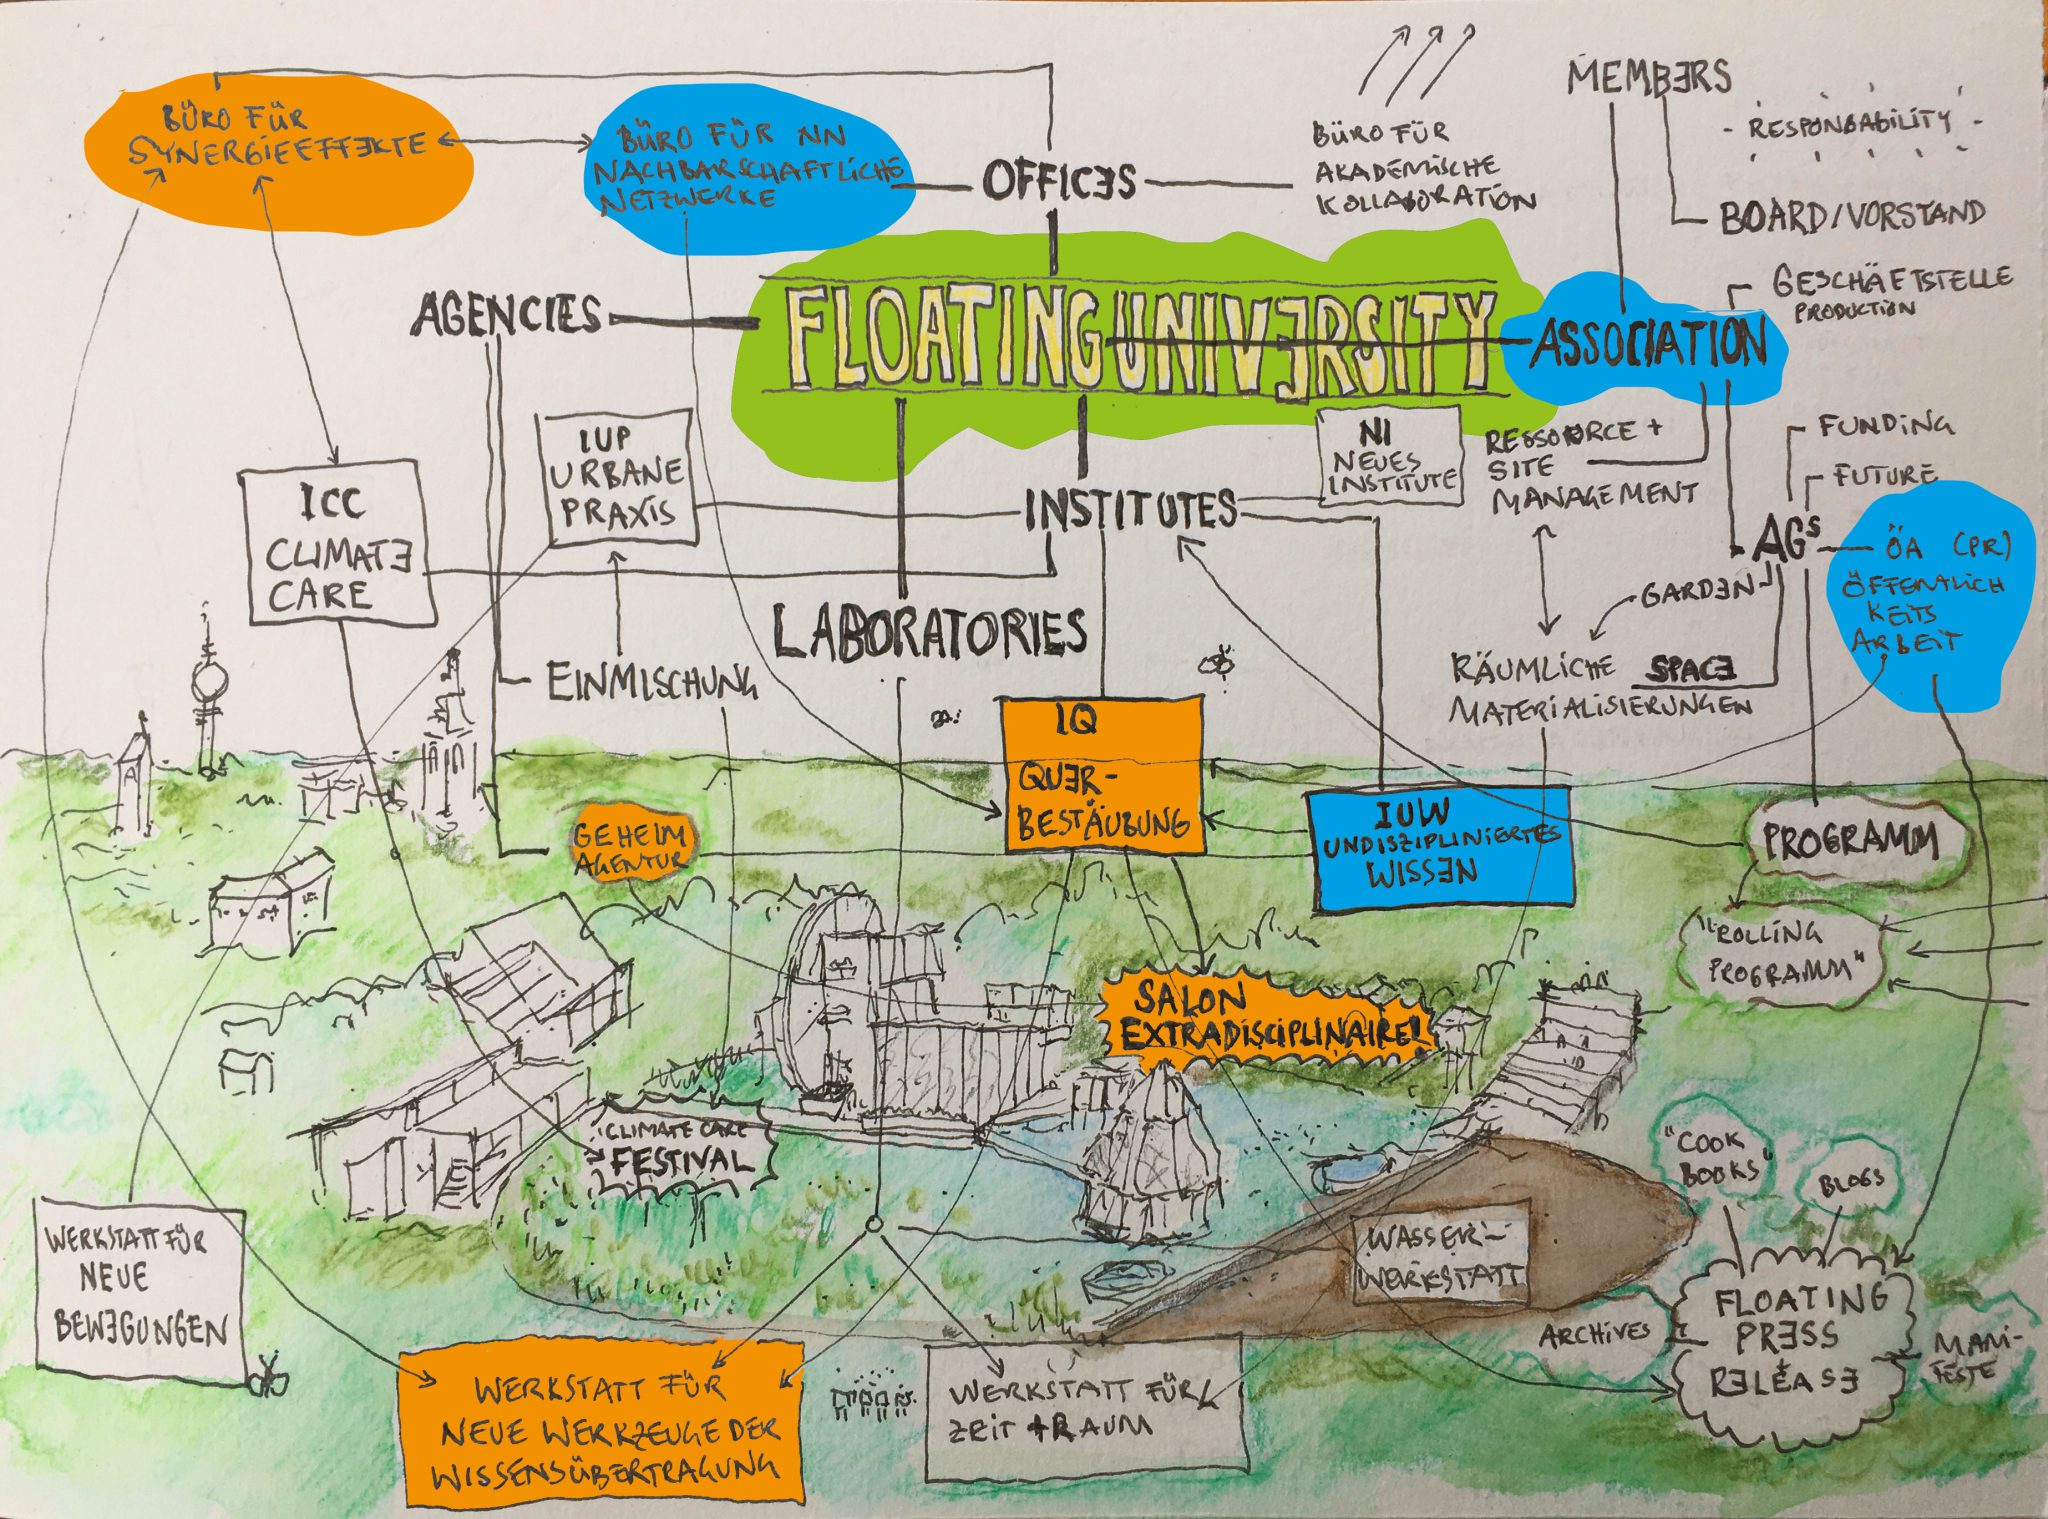 MEMBERS
- RESPONSABILITY -
BÜRO FÜR
SYNERGIEEFFEKTE
BÜRO FÜR NN
NACHBARSCHAFTLICHE
NETZWERKE
OFFICES
BÜRO FÜR
AKADEMISCHE
KOLLABORATION
BOARD/VORSTAND
GESCHÄFTSTELLE
PRODUCTION
AGENCIES
FLOATING UNIVERSITY
ASSOCIATION
IUP
URBANE
PRAXIS
NI
NEUES
INSTITUTE
RESSOURCE +
SITE
MANAGEMENT
FUNDING
FUTURE
ICC
CLIMATE
CARE
INSTITUTES
AGs
ÖA (PR)
ÖFFENTLICH
KEITS
ARBEIT
GARDEN
LABORATORIES
EINMISCHUNG
RÄUMLICHE SPACE
MATERIALISIERUNGEN
IQ
QUER-
BESTÄUBUNG
GEHEIM
AGENTUR
IUW
UNDISZIPLINIERTES
WISSEN
PROGRAMM
"ROLLING
PROGRAMM"
SALON
EXTRADISCIPLINAIRE!
CLIMATE CARE
FESTIVAL
"COOK
BOOKS"
BLOGS
WERKSTATT FÜR
NEUE
BEWEGUNGEN
WASSER-
WERKSTATT
ARCHIVES
FLOATING
PRESS
RELEASE
MANI-
FESTE
WERKSTATT FÜR
NEUE WERKZEUGE DER
WISSENSÜBERTRAGUNG
WERKSTATT FÜR
ZEIT + RAUM